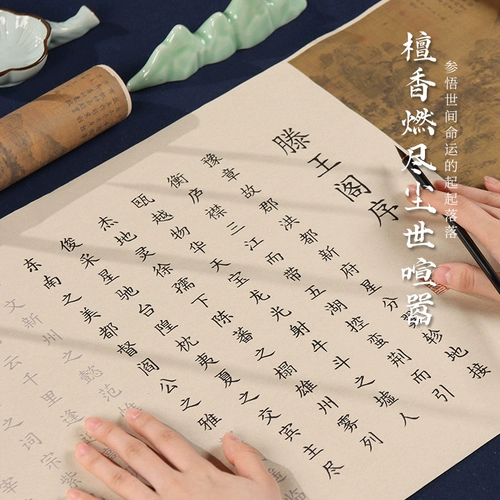 檀香燃尽尘世喧嚣
参悟世间命运的起起落落
滕王阁序
豫章故郡洪都新府星分翼轸地接
衡庐襟三江而带五湖控蛮荆而引
瓯越物华天宝龙光射牛斗之墟人
杰地灵徐孺下陈蕃之榻雄州雾列
俊采星驰台隍枕夷夏之交宾主尽
东南之美都督阎公之雅
文新州之懿范
云千里逢
之词宗紫